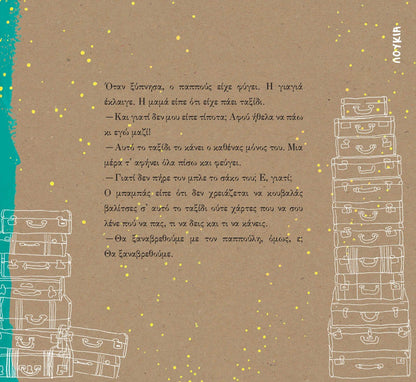 ΛΟΥΚΙΑ
Όταν ξύπνησα, ο παππούς είχε φύγει. Η γιαγιά
έκλαιγε. Η μαμά είπε ότι είχε πάει ταξίδι.
— Και γιατί δεν μου είπε τίποτα; Αφού ήθελα να πάω
κι εγώ μαζί!
— Αυτό το ταξίδι το κάνει ο καθένας μόνος του. Μια
μέρα τ’ αφήνει όλα πίσω και φεύγει.
— Γιατί δεν πήρε τον μπλε το σάκο του; Ε, γιατί;
Ο μπαμπάς είπε ότι δεν χρειάζεται να κουβαλάς
βαλίτσες σ’ αυτό το ταξίδι ούτε χάρτες που να σου
λένε πού να πας, τι να δεις και τι να κάνεις.
— Θα ξαναβρεθούμε με τον παππούλη, όμως, ε;
Θα ξαναβρεθούμε.